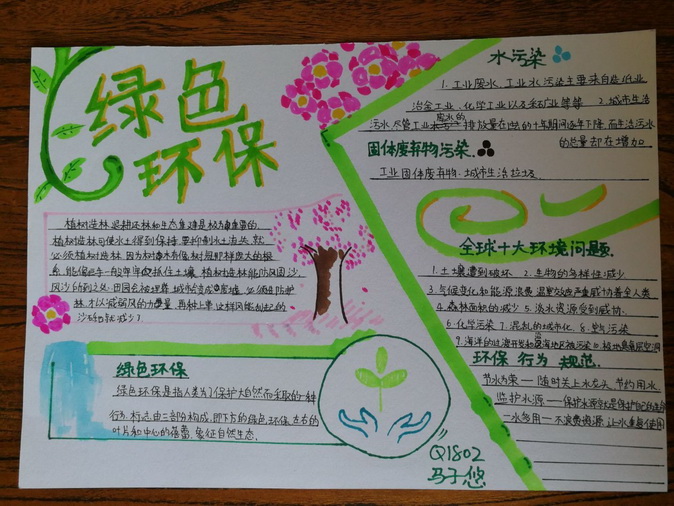 绿色
环保
植树造林、退耕还林和生态重建是极为重要的。
植树造林可使水土得到保持,要抑制水土流失,就
必须植树造林,因为树木有像树冠那样庞大的根
系,能像巨手一般牢牢抓住土壤,植树造林能防风固沙,
风沙
必须植防护
林,才以减弱风的力量,再种上草,这样风能刮起的
沙石就减少了
绿色环保
绿色环保是指人类为了保护大自然而采取的一种
行为,标志由三部分构成,即下方的绿色环保,左右的
叶片和中心的蓓蕾,象征自然生态.
Q1802
马子悠
水污染
1.工业废水,工业水污染主要来自造纸业
冶金工业、化学工业以及采矿业等等 2.城市生活
污水,尽管工业废水的排放量在过去的十年期间逐年下降,而生活污水
的总量却在增加
固体废弃物污染
工业固体废弃物.城市生活垃圾
全球十大环境问题.
1.土壤遭到破坏 2.生物的多样性减少
3.气候变化和能源浪费 温室效应严重威胁着全人类
4.森林面积的减少 5.淡水资源受到威胁.
6.化学污染 7.混乱的城市化 8.空气污染
9.海洋的过渡开发和沿海地区被污染 10.极地臭氧层空洞
环保行为规范.
节水为荣—随时关上水龙头,节约用水
监护水源—保护水源就是保护自己的生命
一水多用—不浪费资源,让水重复使用